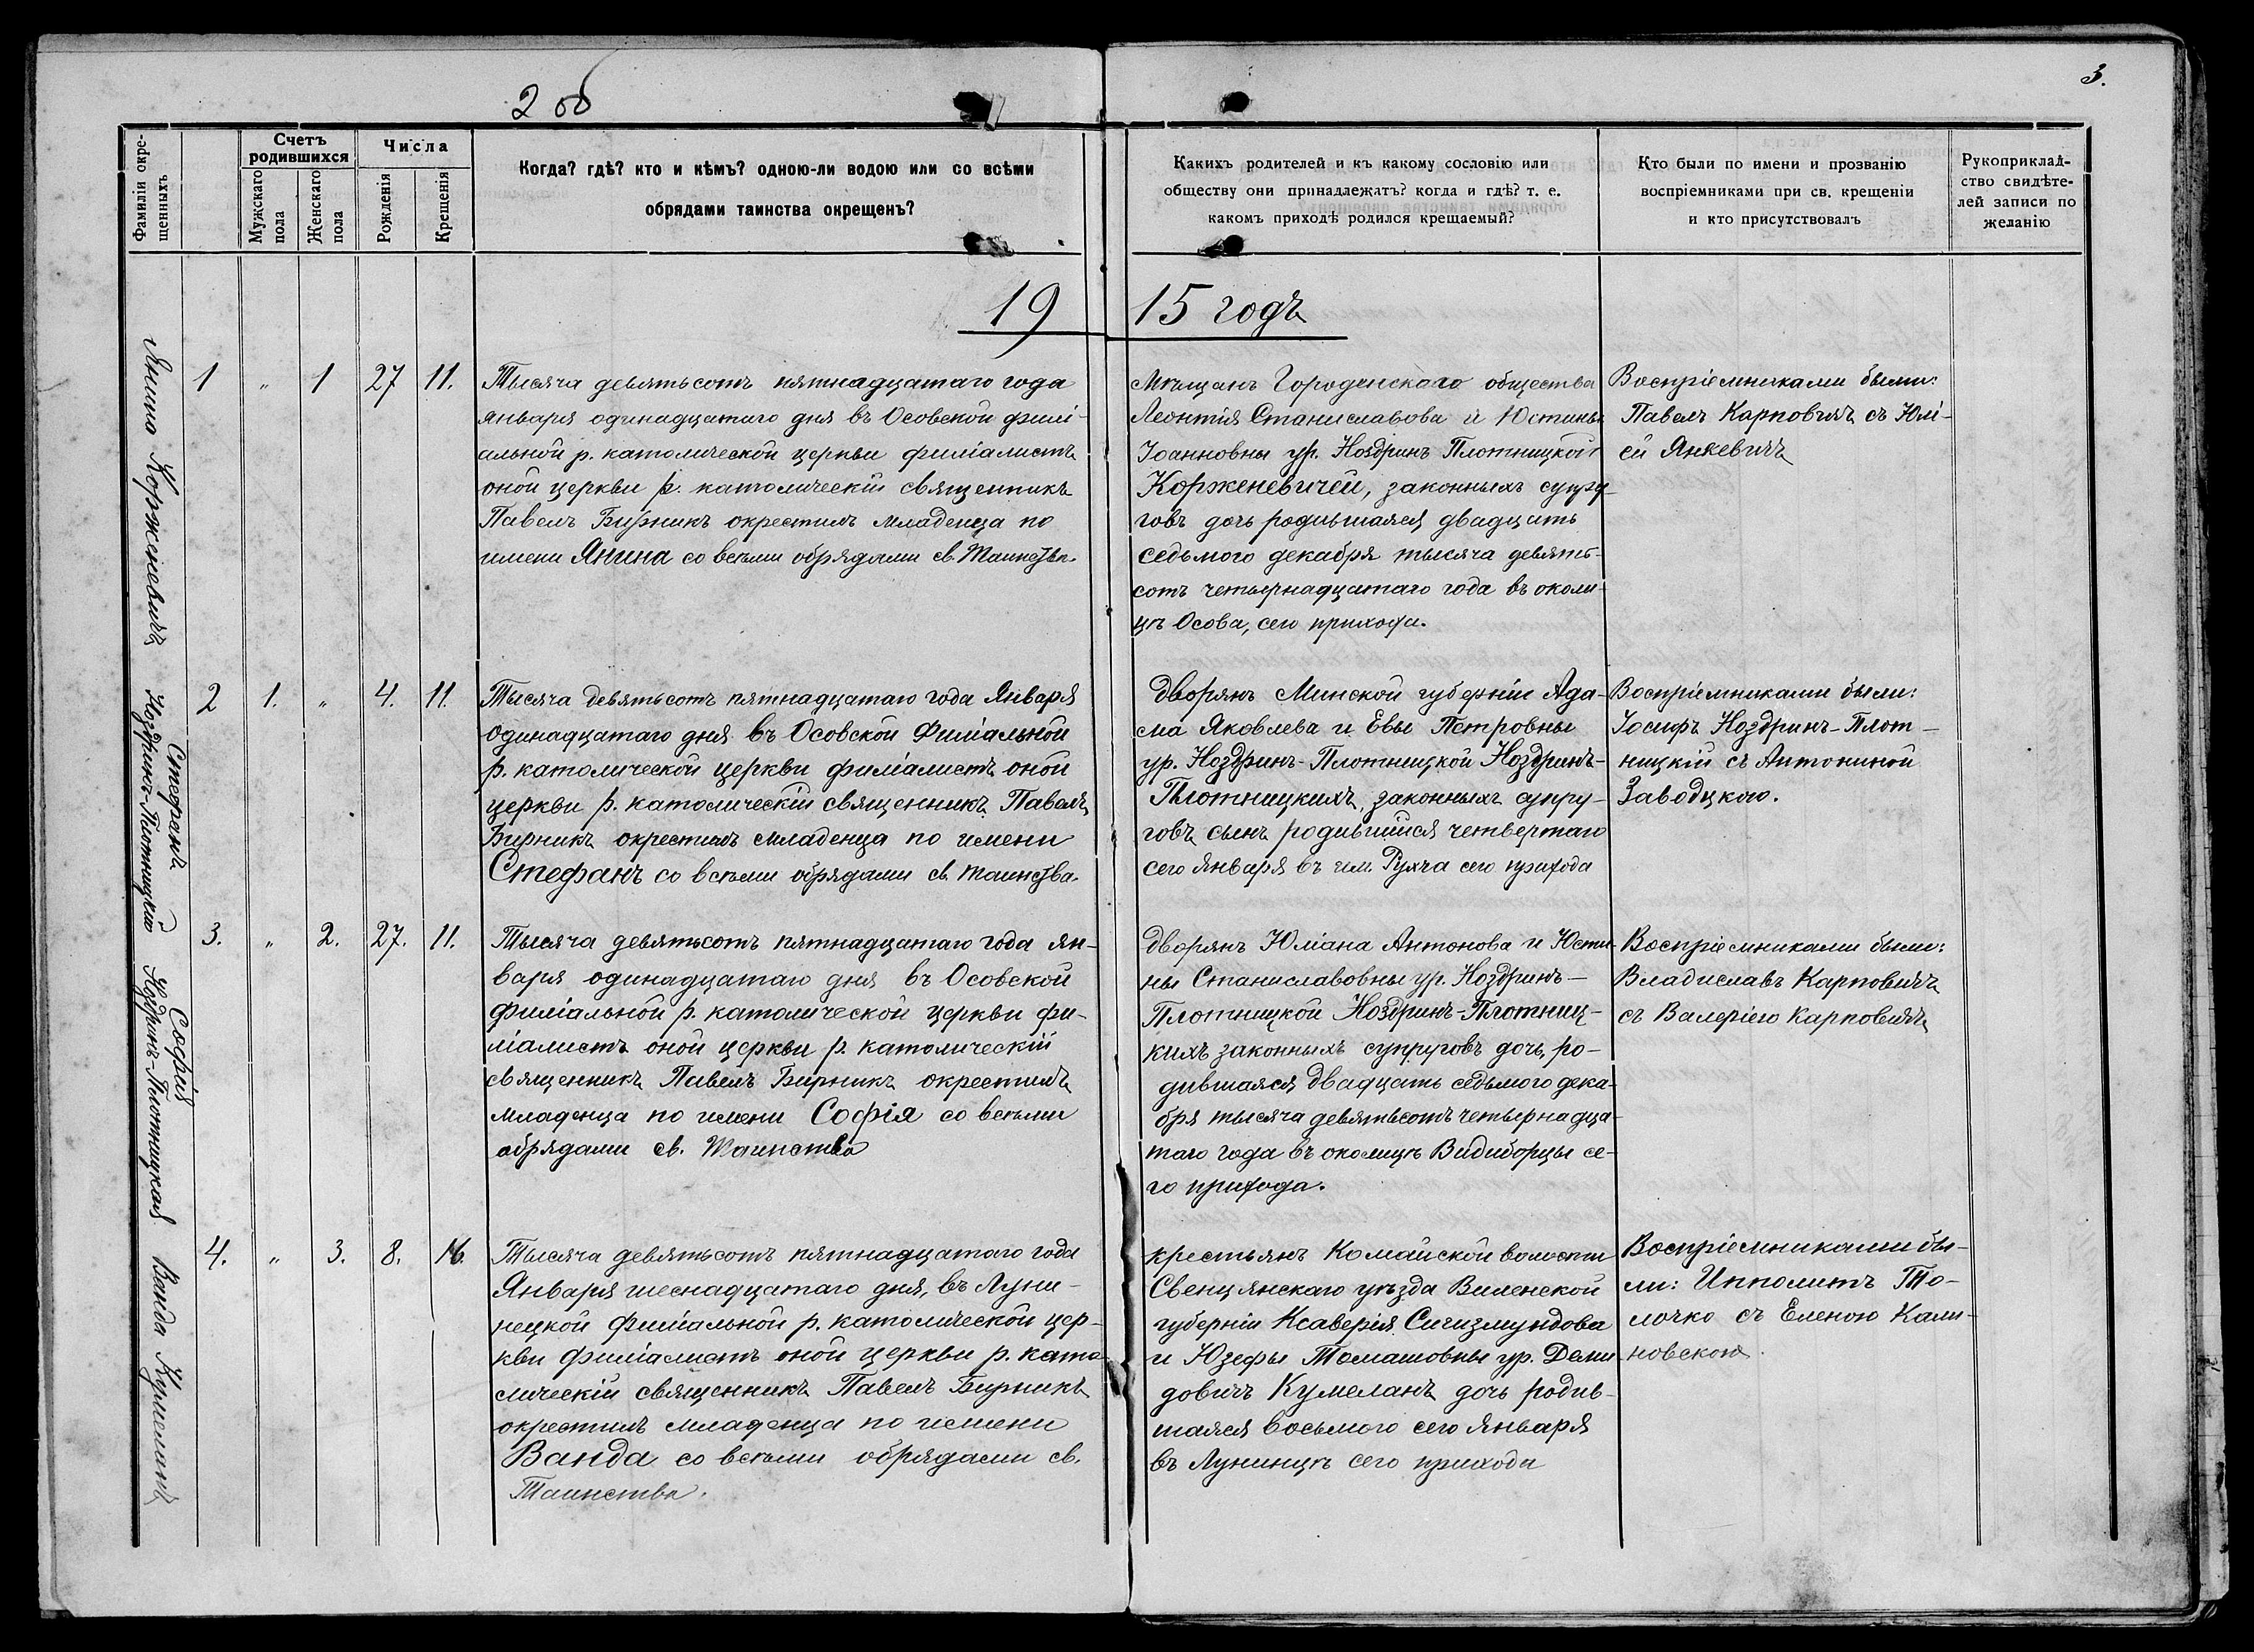 2 об
3.
Фамиліи окре-
щенныхъ
Счетъ
родившихся
Мужскаго
пола
Женскаго
пола
Числа
Рожденія
Крещенія
Когда? гдѣ? кто и кѣмъ? одною-ли водою или со всѣми
обрядами таинства окрещенъ?
Какихъ родителей и къ какому сословію или
обществу они принадлежатъ? когда и гдѣ? т. е.
какомъ приходѣ родился крещаемый?
Кто были по имени и прозванію
воспріемниками при св. крещеніи
и кто присутствовалъ
Рукоприклад-
ство свидѣте-
лей записи по
желанію
19 15 годъ
Янина Корженевичъ
1 " 1 27 11.
Тысяча девятьсотъ пятнадцатаго года
января одинадцатаго дня въ Осовской филі-
альной р. католической церкви филіалистъ
оной церкви р. католическій священникъ
Павелъ Бирникъ окрестилъ младенца по
имени Янина со всѣми обрядами св. Таинства.
Мѣщанъ Городенскаго общества
Леонтія Станиславова и Юстины
Іоанновны ур. Ноздринъ Плотницкой
Корженевичей, законныхъ супру-
говъ дочь родившаяся двадцать
седьмого декабря тысяча девять-
сотъ четырнадцатаго года въ околи-
цѣ Осова, сего прихода.
Воспріемниками были:
Павелъ Карповичъ съ Юлі-
ей Янкевичъ
Стефанъ
Ноздринъ-Плотницкій
2 1. " 4. 11.
Тысяча девятьсотъ пятнадцатаго года Января
одинадцатаго дня въ Осовской Филіальной
р. католической церкви филіалистъ оной
церкви р. католическій священникъ Павелъ
Бирникъ окрестилъ младенца по имени
Стефанъ со всѣми обрядами св. таинства.
дворянъ Минской губерніи Ада-
ма Яковлева и Евы Петровны
ур. Ноздринъ-Плотницкой Ноздринъ-
Плотницкихъ, законныхъ супру-
говъ сынъ родившійся четвертаго
сего Января въ им. Рухча сего прихода
Воспріемниками были:
Іосифъ Ноздринъ-Плот-
ницкій съ Антониной
Заводцкою.
Софія
Ноздринъ-Плотницкая
3. " 2. 27. 11.
Тысяча девятьсотъ пятнадцатаго года Ян-
варя одинадцатаго дня въ Осовской
филіальной р. католической церкви фи-
ліалистъ оной церкви р. католическій
священникъ Павелъ Бирникъ окрестилъ
младенца по имени Софія со всѣми
обрядами св. Таинства
дворянъ Юліана Антонова и Юсти-
ны Станиславовны ур. Ноздринъ-
Плотницкой Ноздринъ-Плотниц-
кихъ законныхъ супруговъ дочь, ро-
дившаяся двадцать седьмого дека-
бря тысяча девятьсотъ четырнадца-
таго года въ околицѣ Видиборцы се-
го прихода.
Воспріемниками были:
Владиславъ Карповичъ
съ Валеріею Карповичъ
Ванда Кумеланъ
4. " 3. 8. 16.
Тысяча девятьсотъ пятнадцатаго года
Января шеснадцатаго дня, въ Луни-
нецкой филіальной р. католической цер-
кви филіалистъ оной церкви р. като-
лическій священникъ Павелъ Бирникъ
окрестилъ младенца по имени
Ванда со всѣми обрядами св.
Таинства.
крестьянъ Комайской волости
Свенцянскаго уѣзда Виленской
губерніи Ксаверія Сигизмундова
и Юзефы Томашовны ур. Деми
довичъ Кумеланъ дочь родив-
шаяся восьмого сего Января
въ Лунинцѣ сего прихода
Воспріемниками бы-
ли: Ипполитъ То-
лочко съ Еленою Кали-
новскою.